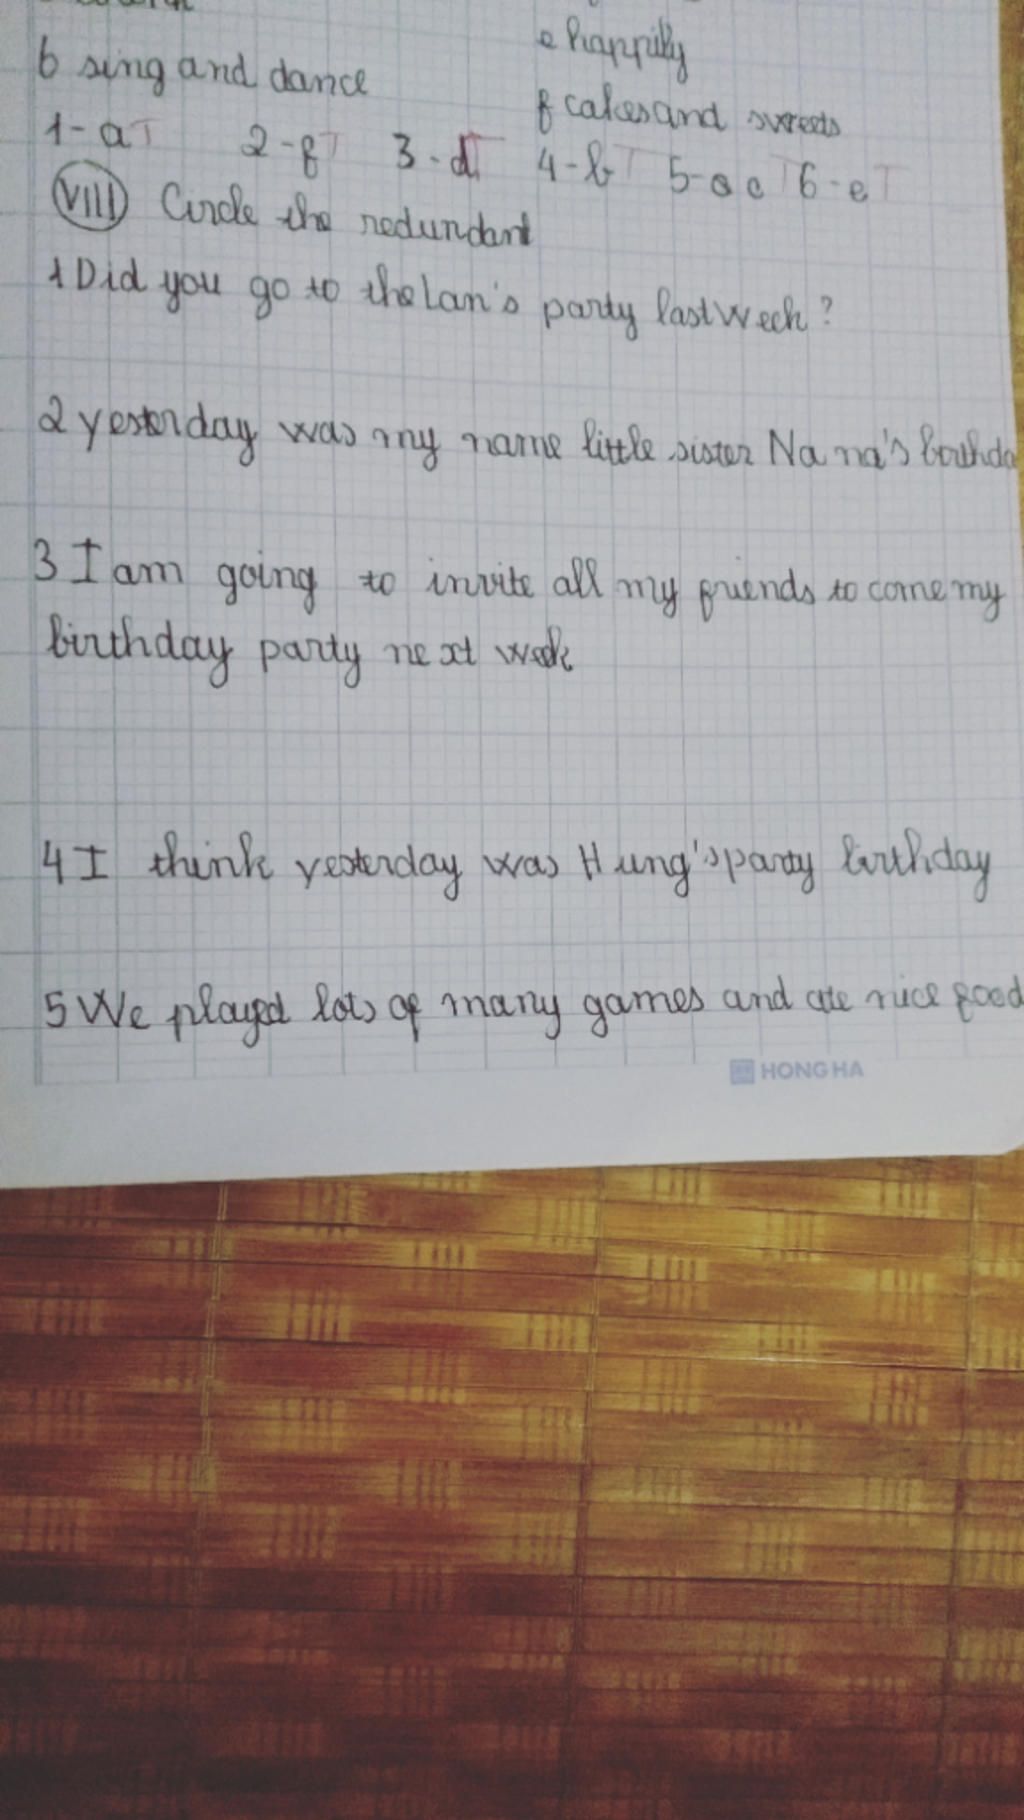 e happily
6 sing and dance
f cakes and sweets
1-a T 2-f T 3-d T 4-b T 5-c T 6-e T
VIII Circle the redundant
1 Did you go to the Lan's party last week?
2 yesterday was my name little sister Na na's birthda
3 I am going to invite all my friends to come my
birthday party next week
4 I think yesterday was Hung's party birthday
5 We played lots of many games and ate nice food
HONG HA